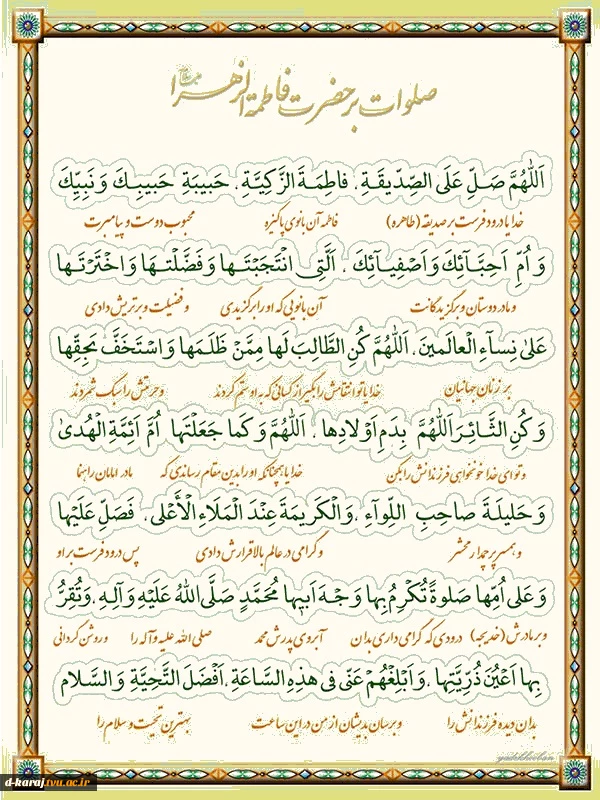 صلوات بر حضرت فاطمة الزهرا
اَللّٰهُمَّ صَلِّ عَلَی الصِّدّیقَةِ . فاطِمَةَ الزَّکِیَّةِ . حَبیبَةِ حَبیبِکَ وَ نَبِیِّکَ
خدایا درود فرست بر صدیقه (طاهره) فاطمه آن بانوی پاکیزه محبوب دوست و پیامبرت
وَ اُمِّ اَحِبَّآئِکَ وَ اَصْفِیـآئِکَ . اَلَّتِی انْتَجَبْتَـها وَ فَضَّلْتَـها وَ اخْتَرْتَـها
و مادر دوستان و برگزیدگانت آن بانویی که او را برگزیدی و فضیلت و برتریش دادی
عَلیٰ نِسآءِ الْعالَمینَ . اَللّٰهُمَّ کُنِ الطّالِبَ لَها مِمَّنْ ظَلَمَها وَ اسْتَخَفَّ بِحَقِّها
بر زنان جهانیان خدایا تو انتقامش را بگیر از کسانی که به او ستم کردند و حرمتش را سبک شمردند
وَ کُنِ الثّـائِرَ اَللّٰهُمَّ بِدَمِ اَوْلادِها . اَللّٰهُمَّ وَ کَما جَعَلْتَها اُمَّ اَئِمَّةِ الْهُدیٰ
و تو ای خدا خونخواهی فرزندانش را بکن خدایا همچنانکه او را بدین مقام رساندی که مادر امامان راهنما
وَ حَلیلَةَ صاحِبِ اللِّوآءِ . وَ الْکَریمَةَ عِنْدَ الْمَلَاءِ الْأَعْلی . فَصَلِّ عَلَیْها
و همسر پرچمدار محشر و گرامی در عالم بالا قرارش دادی پس درود فرست بر او
وَ عَلی اُمِّها صَلوةً تُکْرِمُ بِها وَجْهَ اَبیها مُحَمَّدٍ صَلَّی اللهُ عَلَیْهِ وَ آلِهِ . وَ تُقِرُّ
و بر مادرش (خدیجه) درودی که گرامی داری بدان آبروی پدرش محمد صلی الله علیه و آله را و روشن گردانی
بِها اَعْیُنَ ذُرِّیَّتِها . وَ اَبْلِغْهُمْ عَنّی فی هذِهِ السّاعَةِ . اَفْضَلَ التَّحِیَّةِ وَ السَّلام
بدان دیده فرزندانش را و برسان بدیشان از من در این ساعت بهترین تحیت و سلام را
d-karaj.tvu.ac.ir